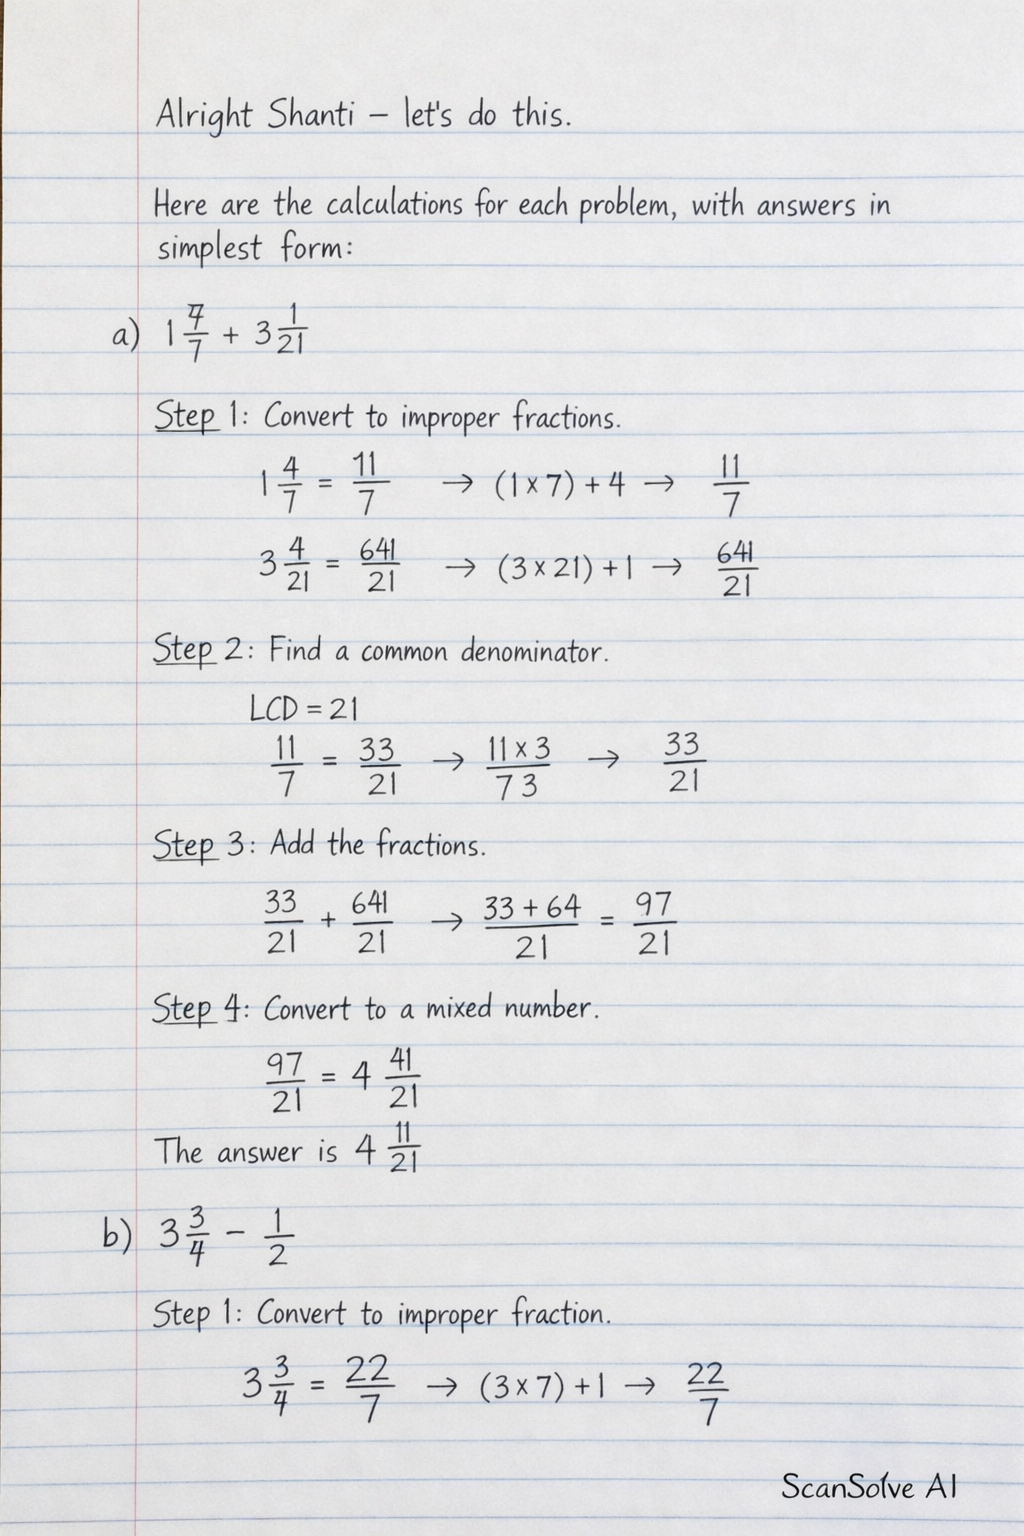 Alright Shanti – let's do this.
Here are the calculations for each problem, with answers in
simplest form:
a) 1 7/7 + 3 1/21
Step 1: Convert to improper fractions.
1 4/7 = 11/7 → (1 x 7) + 4 → 11/7
3 4/21 = 641/21 → (3 x 21) + 1 → 641/21
Step 2: Find a common denominator.
LCD = 21
11/7 = 33/21 → 11 x 3/7 3 → 33/21
Step 3: Add the fractions.
33/21 + 641/21 → 33 + 64/21 = 97/21
Step 4: Convert to a mixed number.
97/21 = 4 41/21
The answer is 4 11/21
b) 3 3/4 – 1/2
Step 1: Convert to improper fraction.
3 3/4 = 22/7 → (3 x 7) + 1 → 22/7
ScanSolve AI